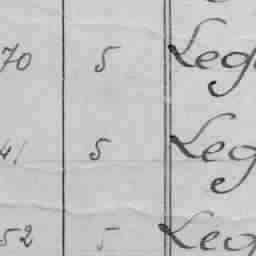 70 5 Leg
41 5 Leg
52 5 Leg